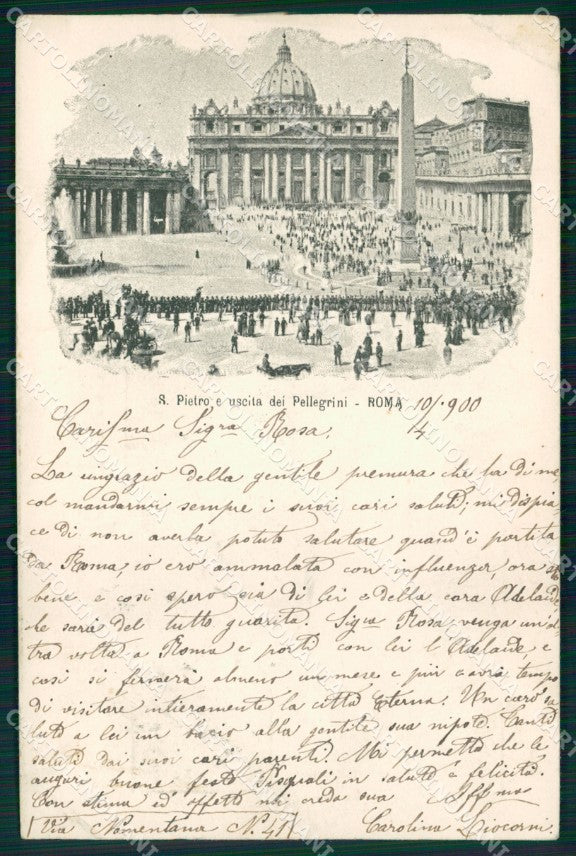 S. Pietro e uscita dei Pellegrini - ROMA 10/4.900
Carissma Sigra Rosa,
La ringrazio della gentile premura che ha di me
col mandarmi sempre i suoi cari saluti; mi dispia
ce di non averla potuto salutare quand'è partita
da Roma, io ero ammalata con influenza, ora sto
bene e così spero sia di lei e della cara Adelaide
che sarà del tutto guarita. Sigra Rosa, venga un'al
tra volta a Roma e porti con lei l'Adelaide e
così si fermerà almeno un mese e più e avrà tempo
di visitare intieramente la città Eterna. Un caro sa
luto a lei un bacio alla gentile sua nipote. Tanti
saluti dai suoi cari parenti. Mi permetto che le
auguri buone feste Pasquali in salute e felicità.
Con stima ed affetto mi creda sua Affma
Via Nomentana N. 41 Carolina Liocorni
CARTOLINOMANIA